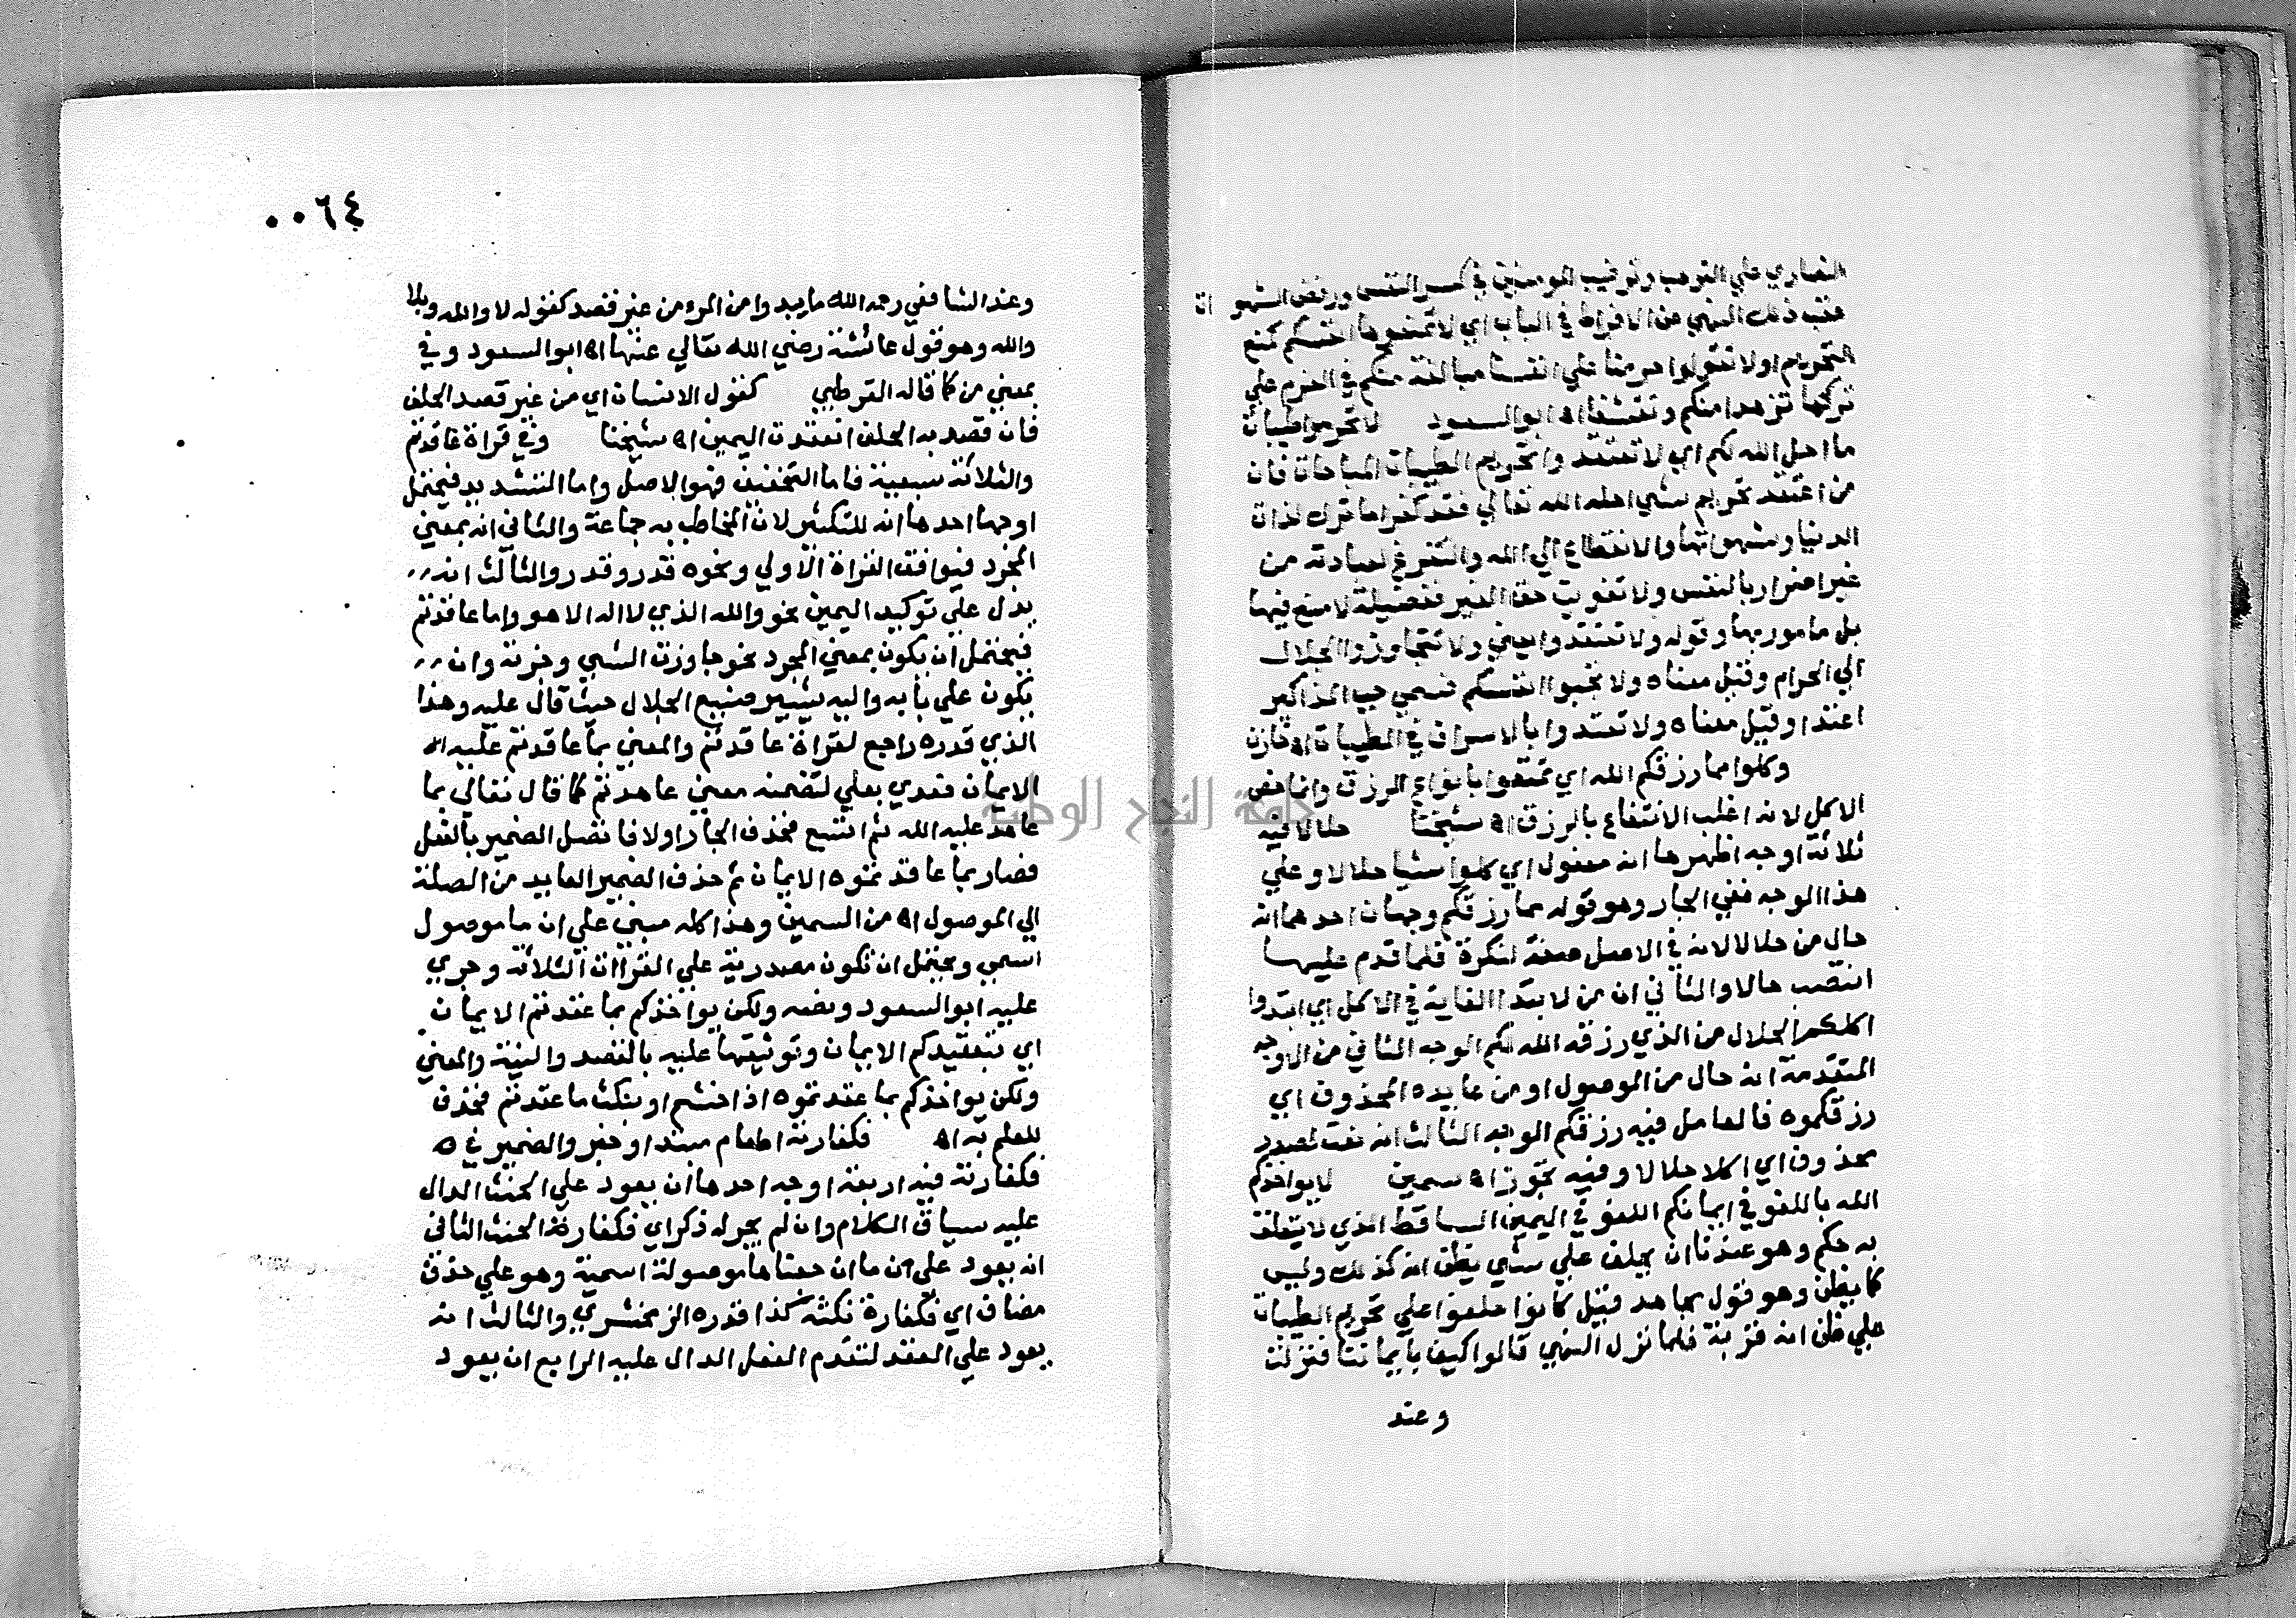 النصاري علي الترهب وترغيب المومنين في كسر النفس ورفض الشهوات
عقب ذلك النهي عن الافراط في الباب اي لا تمنعوها انفسكم كمنع
التحريم اولا تقولوا حرمنا علي انفسنا مبالغة منكم في العزم علي
تركها تزهدا منكم وتقشفا اه ابو السعود لا تحرموا طيبات
ما احل الله لكم اي لا تعتقدوا تحريم الطيبات المباحات فان
من اعتقد تحريم شي احله الله تعالي فقد كفر اما ترك لذات
الدنيا وشهواتها والانقطاع الي الله والتفرغ لعبادته من
غير اضرار بالنفس ولا تفويت حق الغير ففضيلة لا منع فيها
بل مامور بها وقوله ولا تعتدوا يعني ولا تتجاوزوا الحلال
الي الحرام وقيل معناه ولا تجبوا انفسكم فسمي جب المذاكير
اعتدا وقيل معناه ولا تعتدوا بالاسراف في الطيبات اه خازن
وكلوا مما رزقكم الله اي تمتعوا بانواع الرزق وانما خص
الاكل لانه اغلب الانتفاع بالرزق اه شيخنا حلالا فيه
ثلاثة اوجه اظهرها انه مفعول اي كلوا شيا حلالا وعلي
هذا الوجه ففي الجار وهو قوله مما رزقكم وجهان احدهما انه
حال من حلالا لانه في الاصل صفة لنكرة فلما قدم عليها
انتصب حالا والثاني ان من لابتدا الغاية في الاكل اي ابتدوا
اكلكم الحلال من الذي رزقه الله لكم الوجه الثاني من الاوجه
المتقدمة انه حال من الموصول او من عايده المحذوف اي
رزقكموه فالعامل فيه رزقكم الوجه الثالث انه نعت لمصدر
محذوف اي اكلا حلالا وفيه تجوز اه سمين لا يواخذكم
الله باللغو في ايمانكم اللغو في اليمين الساقط الذي لا يتعلق
به حكم وهو عندنا ان يحلف علي شي يظن انه كذلك وليس
كما يظن وهو قول مجاهد قيل كانوا حلفوا علي تحريم الطيبات
علي ظن انه قربة فلما نزل النهي قالوا كيف بايماننا فنزلت
وعند
٠٠٦٤
وعند الشافعي رحمه الله ما يبدوا من المرء من غير قصد كقوله لا والله وبلا
والله وهو قول عائشة رضي الله تعالي عنها اه ابو السعود وفي
بمعني من كما قاله القرطبي كقول الانسان اي من غير قصد الحلف
فان قصد به الحلف انعقدت اليمين اه شيخنا وفي قراة عاقدتم
والثلاثة سبعية فاما التخفيف فهو الاصل واما التشديد فيحتمل
اوجها احدها انه للتكثير لان المخاطب به جماعة والثاني انه بمعني
المجرد فيوافق القراة الاولي ونحوه قدر وقدر والثالث انه
يدل علي توكيد اليمين نحو والله الذي لا اله الا هو واما عاقدتم
فيحتمل ان يكون بمعني المجرد نحو جاوزت الشي وجزته وان
يكون علي بابه واليه يشير صنيع الجلال حيث قال عليه وهذا
الذي قدره راجع لقراة عاقدتم والمعني بما عاقدتم عليه اه
الايمان فعدي بعلي لتضمنه معني عاهدتم كما قال تعالي بما
عاهد عليه الله ثم اتسع فحذف الجار اولا فاتصل الضمير بالفعل
فصار بما عاقدتموه الايمان ثم حذف الضمير العايد من الصلة
الي الموصول اه من السمين وهذا كله مبني علي ان ما موصول
اسمي ويحتمل ان تكون مصدرية علي القراات الثلاثة وجري
عليه ابو السعود ونصه ولكن يواخذكم بما عقدتم الايمان
اي بتعقيدكم الايمان وتوثيقها عليه بالقصد والنية والمعني
ولكن يواخذكم بما عقدتموه اذا حنثتم او بنكث ما عقدتم فحذف
للعلم به اه فكفارته اطعام مبتدا وخبر والضمير في ه
فكفارته فيه اربعة اوجه احدها ان يعود علي الحنث الدال
عليه سياق الكلام وان لم يجر له ذكر اي فكفارة الحنث الثاني
انه يعود علي ما ان جعلناها موصولة اسمية وهو علي حذف
مضاف اي فكفارة نكثه كذا قدره الزمخشري والثالث انه
يعود علي العقد لتقدم الفعل الدال عليه الرابع ان يعود
جامعة النجاح الوطنية